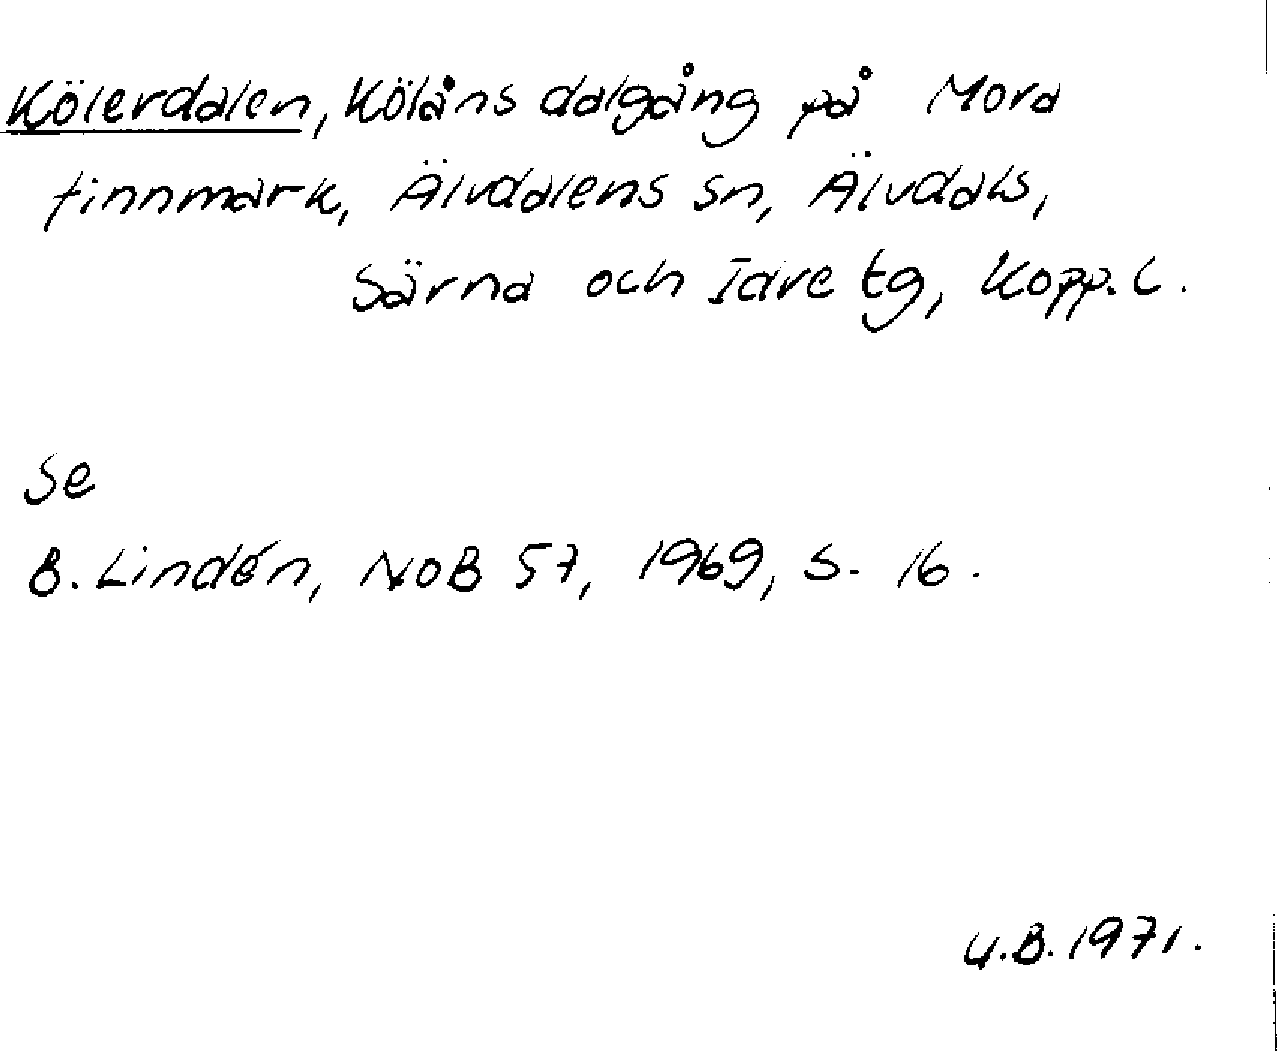 Kölerdalen, Kölåns dalgång på Mora
finnmark, Älvdalens sn, Älvdals,
Särna och Idre tg, Kopp. l.
Se
B. Lindén, NoB 57, 1969, s. 16.
U.B. 1971.